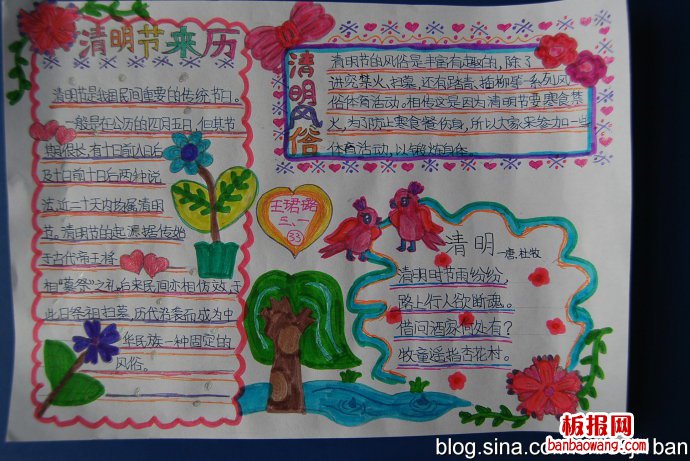 清明节来历
清明节是我国民间重要的传统节日。
一般是在公历的四月五日,但其节
期很长,有十日前八日后
及十日前十日后两种说
法,近二十天内均属清明
节。清明节的起源据传始
于古代帝王将
相“墓祭”之礼,后来民间亦相仿效,于
此日祭祖扫墓,历代沿袭而成为中
华民族一种固定的
风俗。
清明风俗
清明节的风俗是丰富有趣的,除了
讲究禁火、扫墓,还有踏青、插柳等一系列风
俗体育活动。相传这是因为清明节要寒食禁
火,为了防止寒食餐伤身,所以大家来参加一些
体育活动,以锻炼身体。
王珺璐
三、一
33
清明
—唐.杜牧
清明时节雨纷纷,
路上行人欲断魂。
借问酒家何处有?
牧童遥指杏花村。
板报网
banbaowang.com
blog.sina.co